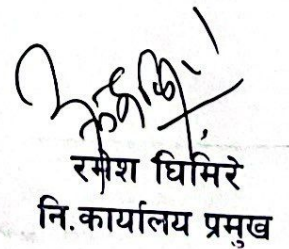 रमेश घिमिरे
नि. कार्यालय प्रमुख